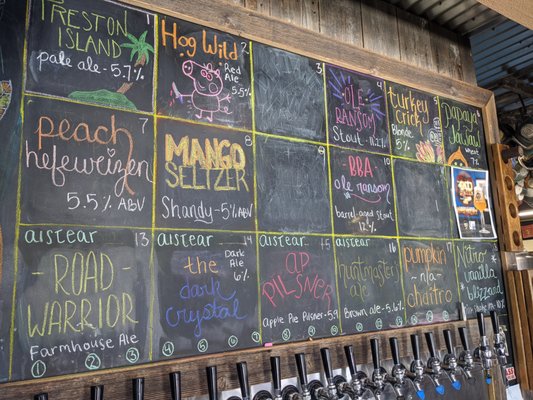 TRESTON
ISLAND
pale ale - 5.7%
Hog Wild 2
Red
Ale
5.5%
3
OLE
RANSOM
Stout - 11.2%
4
turkey
crick
Blonde
5%
5
papaya
6
Peach 7
hefeweizen
5.5% ABV
MANGO 8
SELTZER
Shandy - 5% ABV
9
BBA 10
ole ransom
barrel-aged Stout
12%
aistear 13
- ROAD -
WARRIOR
Farmhouse Ale
aistear 14
the
Dark
Ale
6%
dark
crystal
aistear 15
AP
PILSNER
Apple Pie Pilsner - 5.9
aistear 16
huntmaster
ale
Brown ale - 5.6%
pumpkin
- n/a -
chaitro
Nitro
vanilla
blizzard
1 2 3 4 5 6 7